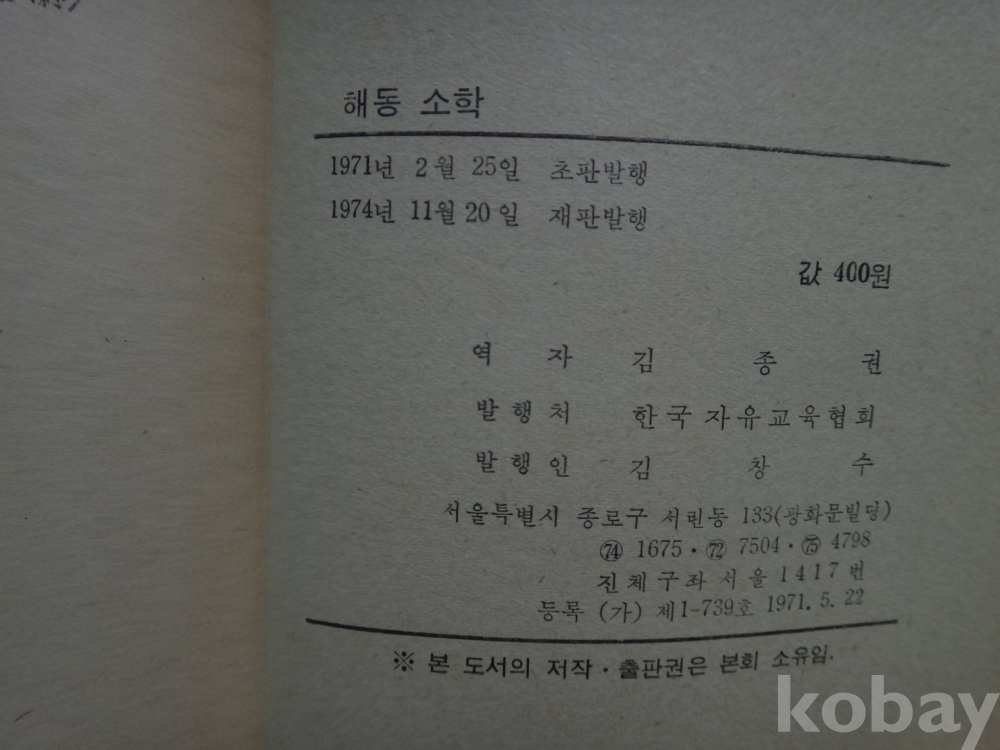 해동 소학
1971년 2월 25일 초판발행
1974년 11월 20일 재판발행
값 400원
역 자 김 종 권
발 행 처 한국자유교육협회
발 행 인 김 창 수
서울특별시 종로구 서린동 133(광화문빌딩)
㉔ 1675 · 72 7504 · 75 4798
진체구좌 서울 1417번
등록 (가) 제1-739호 1971. 5. 22
※ 본 도서의 저작 · 출판권은 본회 소유임.
kobay